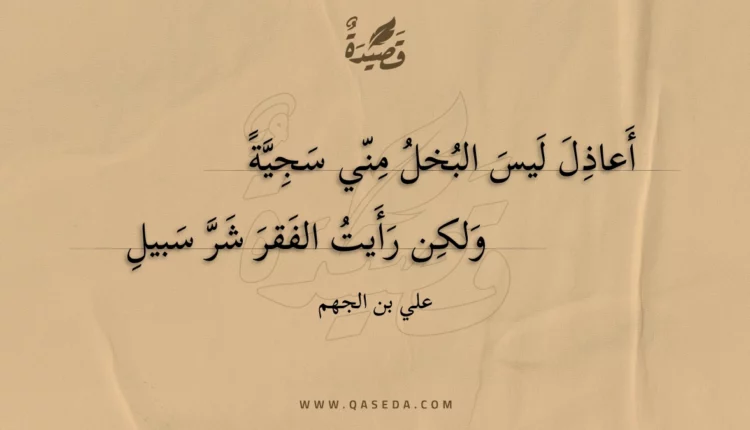 قَصِيدَةٌ
أَعاذِلَ لَيسَ البُخلُ مِنّي سَجِيَّةً
وَلكِن رَأَيتُ الفَقرَ شَرَّ سَبيلِ
علي بن الجهم
WWW.QASEDA.COM